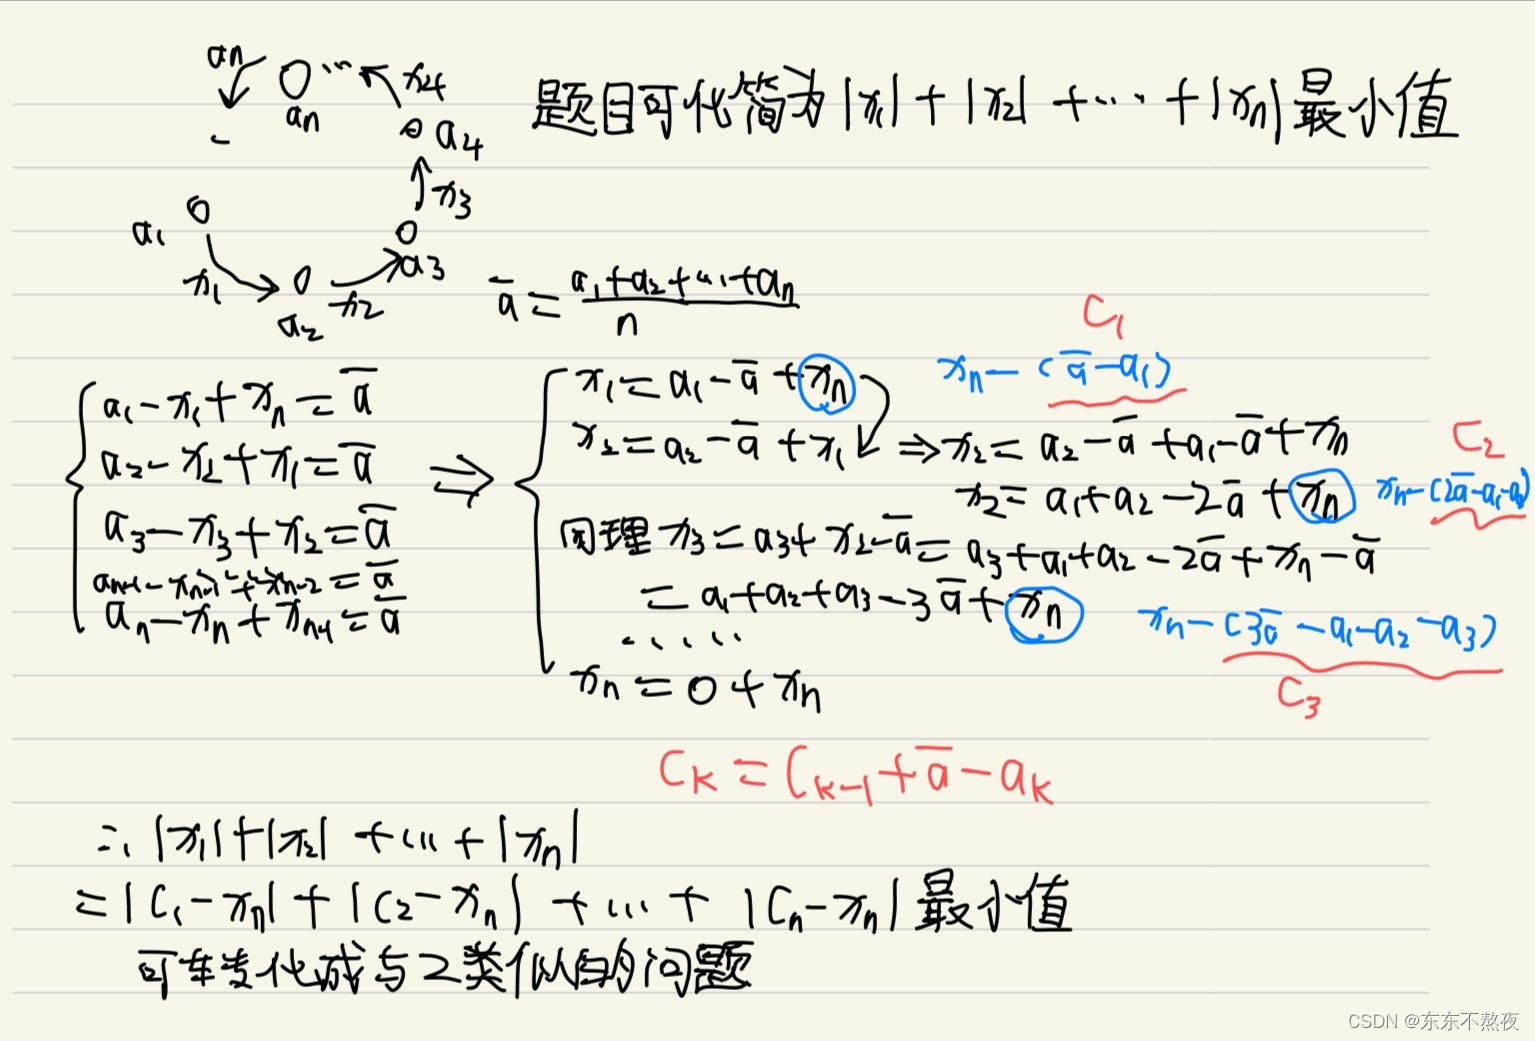 an
an
x4
a4
x3
a1
x1
a2
x2
a3
题目可化简为|x1|+|x2|+…+|xn|最小值
ā=(a1+a2+…+an)/n
a1-x1+xn=ā
a2-x2+x1=ā
a3-x3+x2=ā
an-1-xn-1+xn-2=ā
an-xn+xn-1=ā
⇒
x1=a1-ā+xn
xn-(ā-a1)
C1
x2=a2-ā+x1 ⇒x2=a2-ā+a1-ā+xn
x2=a1+a2-2ā+xn
xn-(2ā-a1-a2)
C2
同理 x3=a3+x2-ā=a3+a1+a2-2ā+xn-ā
=a1+a2+a3-3ā+xn
xn-(3ā-a1-a2-a3)
C3
……
xn=0+xn
Ck=Ck-1+ā-ak
∴|x1|+|x2|+…+|xn|
=|C1-xn|+|C2-xn|+…+|Cn-xn|最小值
可转变化成与2类似的问题
CSDN @东东不熬夜